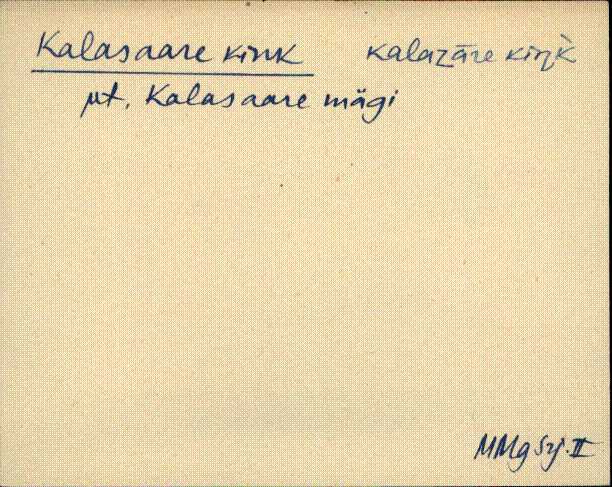 Kalasaare kink kalazāre kiŋ̀k
µt. Kalasaare mägi
MMg Srj. II